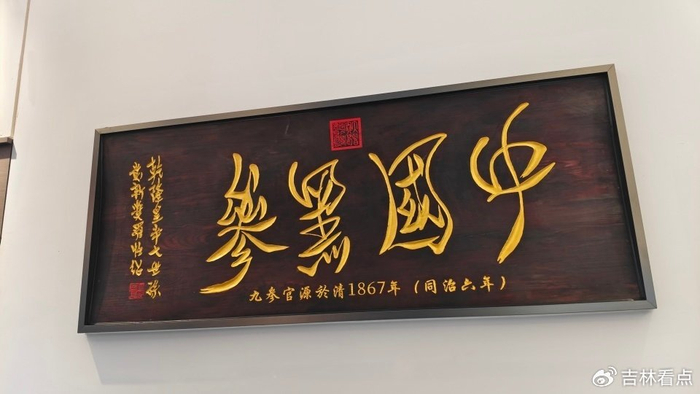 中國黑參
九参官源於清1867年（同治六年）
乾隆皇帝七世孫
愛新覺羅
吉林看点